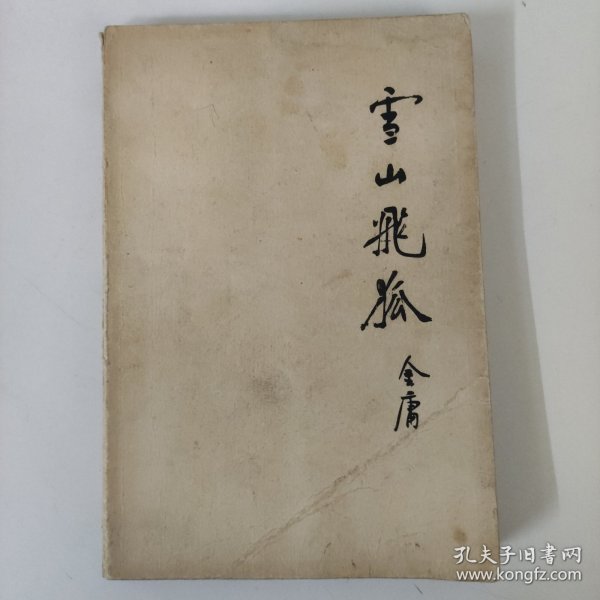 雪山飛狐
金庸
孔夫子旧書网
www.kongfz.com